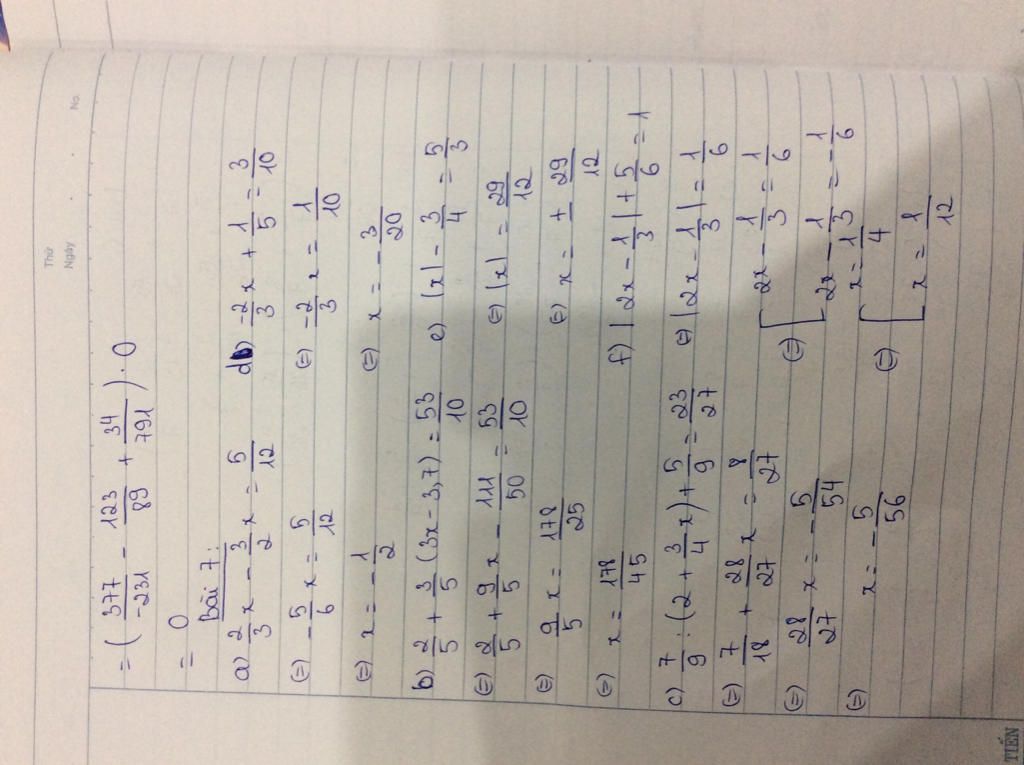 Thứ
Ngày
No.
= (377/-231 - 123/89 + 34/791) . 0
= 0
Bài 7:
a) 2/3 x - 3/2 x = 5/12
(=) -5/6 x = 5/12
(=) x = -1/2
b) 2/5 + 3/5 (3x - 3,7) = 53/10
(=) 2/5 + 9/5 x - 111/50 = 53/10
(=) 9/5 x = 178/25
(=) x = 178/45
c) 7/9 : (2 + 3/4 x) + 5/9 = 23/27
(=) 7/18 + 28/27 x = 8/27
(=) 28/27 x = -5/54
(=) x = -5/56
d) -2/3 x + 1/5 = 3/10
(=) -2/3 x = 1/10
(=) x = -3/20
e) |x| - 3/4 = 5/3
(=) |x| = 29/12
(=) x = ± 29/12
f) |2x - 1/3| + 5/6 = 1
(=) |2x - 1/3| = 1/6
(=) [ 2x - 1/3 = 1/6
2x - 1/3 = -1/6
(=) [ x = 1/4
x = 1/12
TIẾN